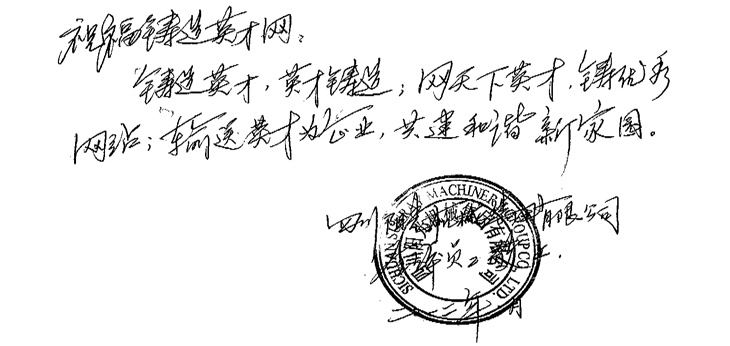 祝福铸造英才网:
铸造英才,英才铸造;网天下英才,铸优秀
网站;输送英才为企业,共建和谐新家园。
四川 有限公司
员工
二〇一二年 月
SICHUAN MACHINERY GROUP CO., LTD.